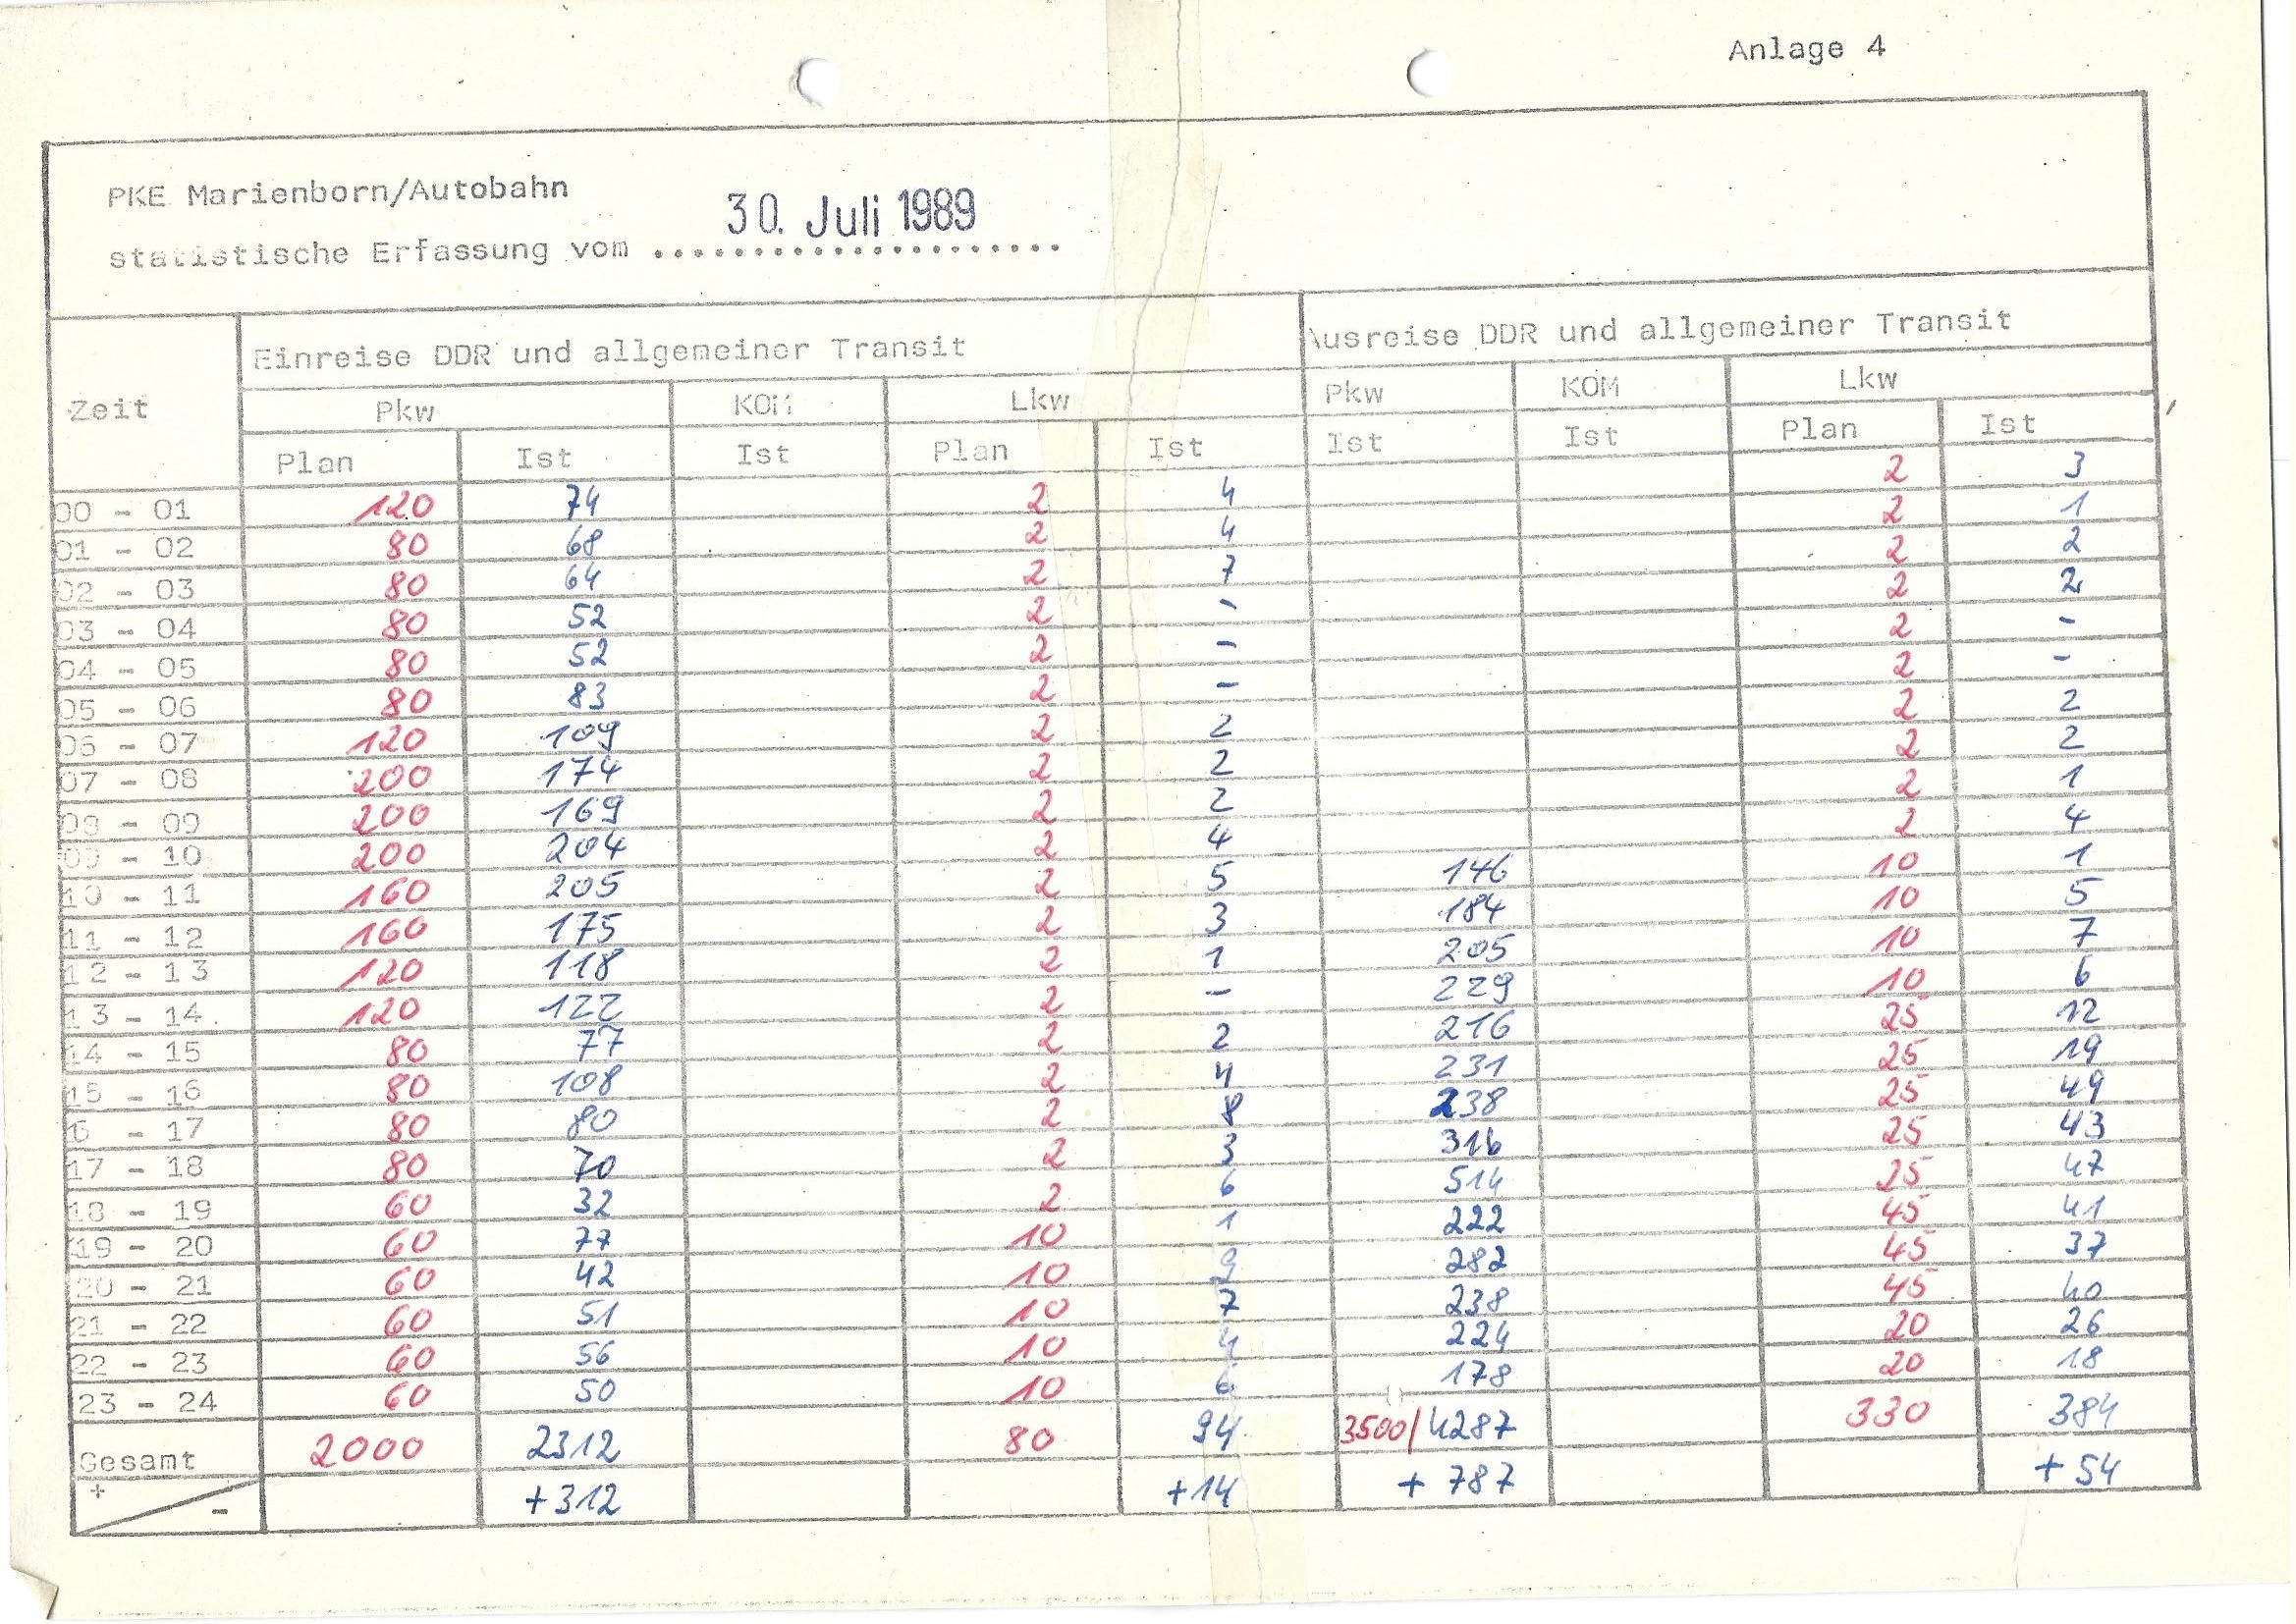 Anlage 4
PKE Marienborn/Autobahn
statistische Erfassung vom ..................... 30. Juli 1989
Zeit Einreise DDR und allgemeiner Transit Ausreise DDR und allgemeiner Transit
Pkw KOM Lkw Pkw KOM Lkw
Plan Ist Ist Plan Ist Ist Ist Plan Ist
00 - 01 120 74 2 4 2 3
01 - 02 80 68 2 4 2 1
02 - 03 80 64 2 7 2 2
03 - 04 80 52 2 - 2 2
04 - 05 80 52 2 - 2 -
05 - 06 80 83 2 - 2 -
06 - 07 120 109 2 2 2 2
07 - 08 200 174 2 2 2 2
08 - 09 200 169 2 2 2 1
09 - 10 200 204 2 4 2 4
10 - 11 160 205 2 5 146 10 1
11 - 12 160 175 2 3 184 10 5
12 - 13 120 118 2 1 205 10 7
13 - 14 120 122 2 - 229 10 6
14 - 15 80 77 2 2 216 25 12
15 - 16 80 108 2 4 231 25 19
16 - 17 80 80 2 8 238 25 49
17 - 18 80 70 2 3 316 25 43
18 - 19 60 32 2 6 514 25 47
19 - 20 60 77 10 1 222 45 41
20 - 21 60 42 10 9 282 45 37
21 - 22 60 51 10 7 238 45 40
22 - 23 60 56 10 4 224 20 26
23 - 24 60 50 10 6 178 20 18
Gesamt 2000 2312 80 94 3500/4287 330 384
+ - +312 +14 + 787 + 54